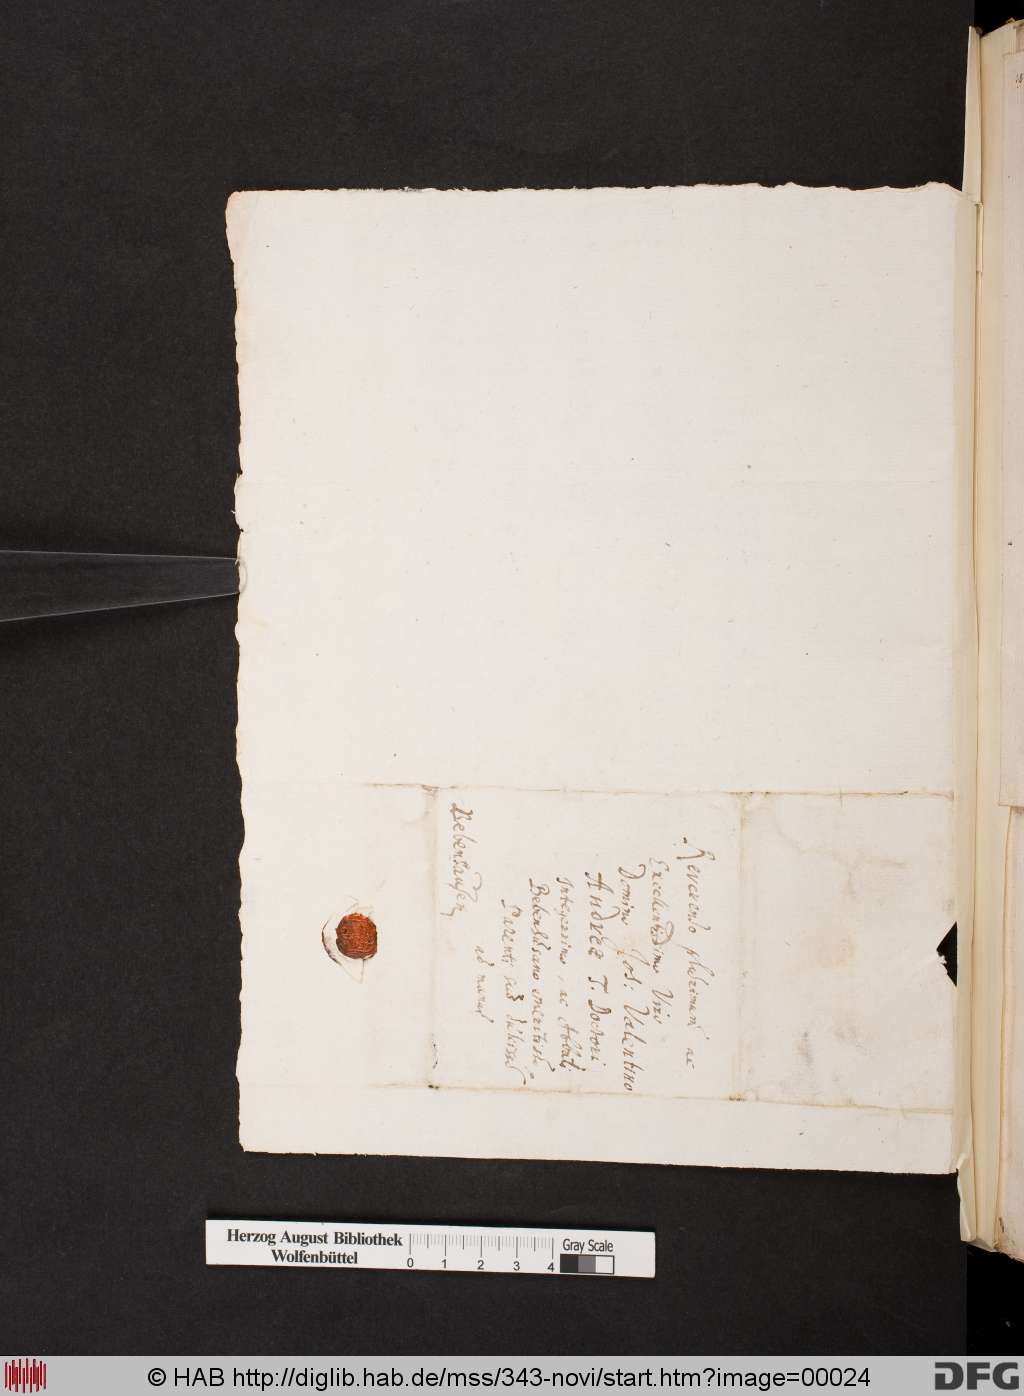 Reverendo plurimum ac
Excellentissimo Viro
Domino Joh: Valentino
Andreæ T. Doctori
Integerrimo, ac Abbati
Bebenhusano meritissº
Parenti suo
ad manus
Bebenhausen
Herzog August Bibliothek
Wolfenbüttel
0 1 2 3 4
Gray Scale
© HAB http://diglib.hab.de/mss/343-novi/start.htm?image=00024
DFG